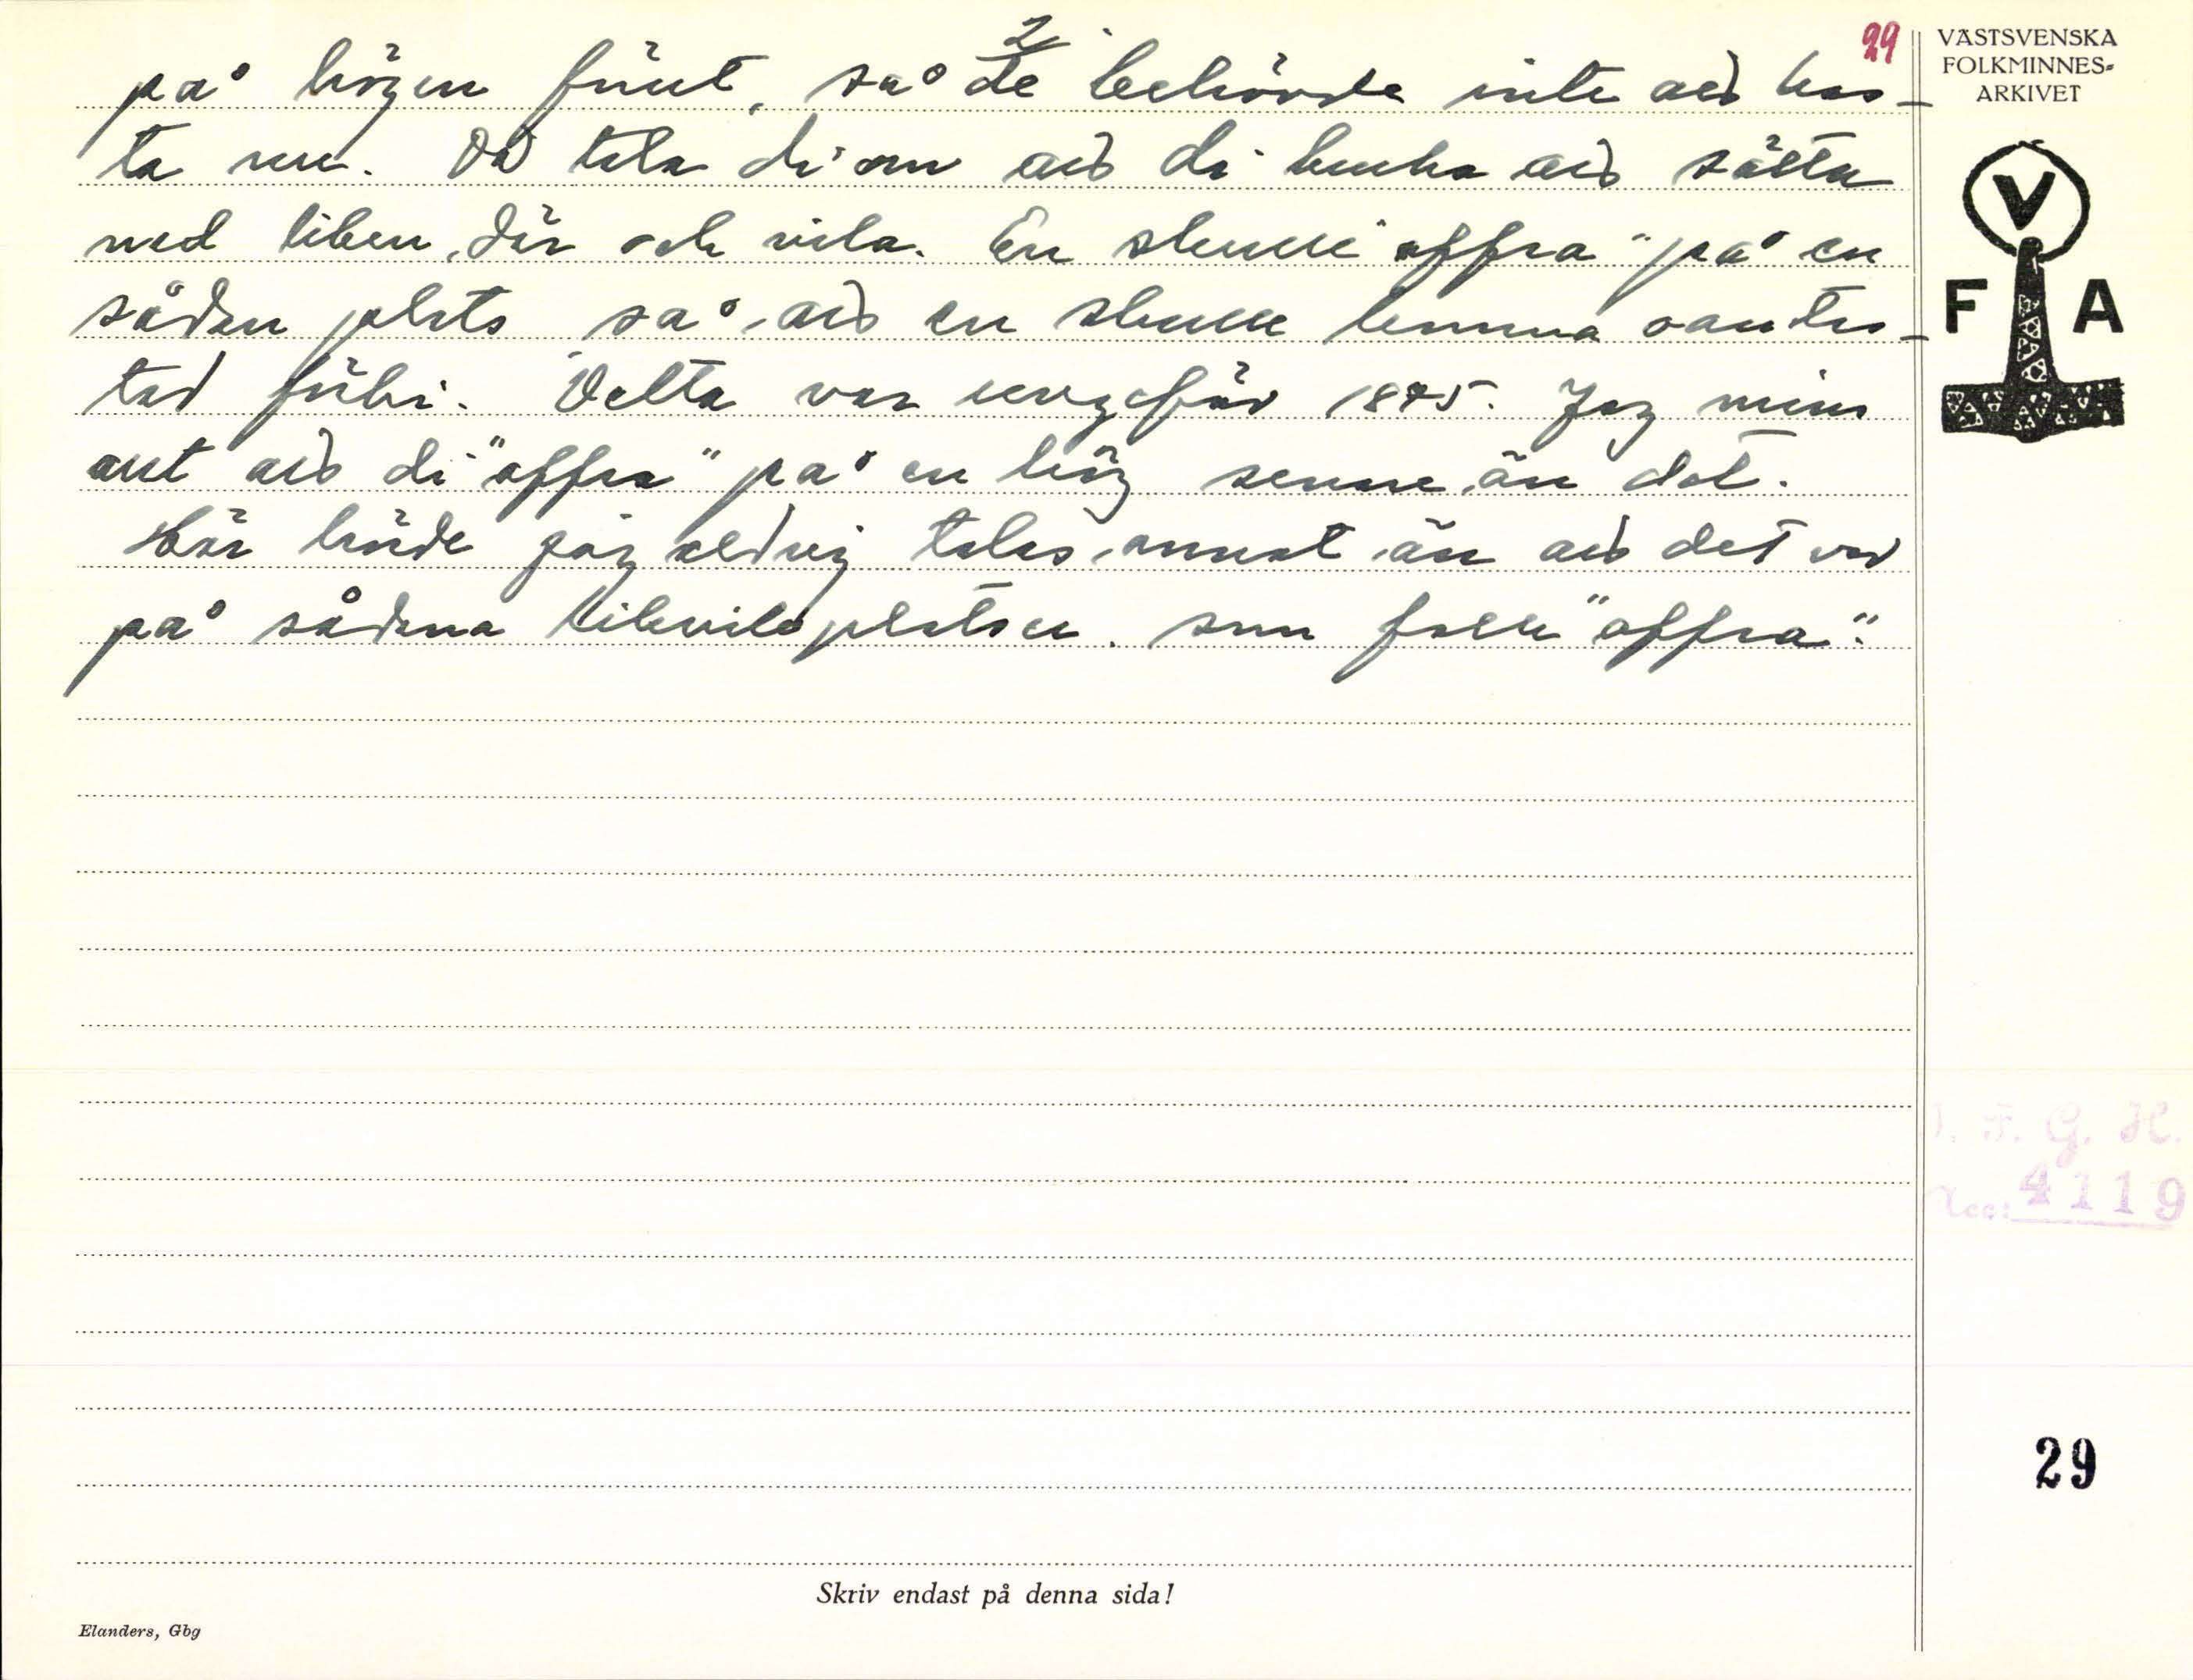 2
29
på högen fürut, så de behövde inte aid kas-
ta nu. Då tala di om aid di bruka aid sätta
ned liken där och vila. En skulle "offra" på en
sådan plats så aid en skulle komma oantas-
tad förbi. Detta var ungefär 1875. Jag mins
aut aid di "offra" på en hög senare än dot.
Här hörde jag aldrig talas annat än aid det var
på sådana likviloplatser som folk "offra".
VÄSTSVENSKA
FOLKMINNES-
ARKIVET
V
F A
I. F. G. H.
Acc: 4119
29
Skriv endast på denna sida!
Elanders, Gbg